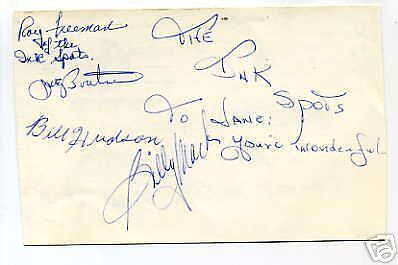 Roy Freeman
of the
Ink Spots.
The
Ink
Spots
To Jane:
You're wonderful
Bill Hudson
Billy